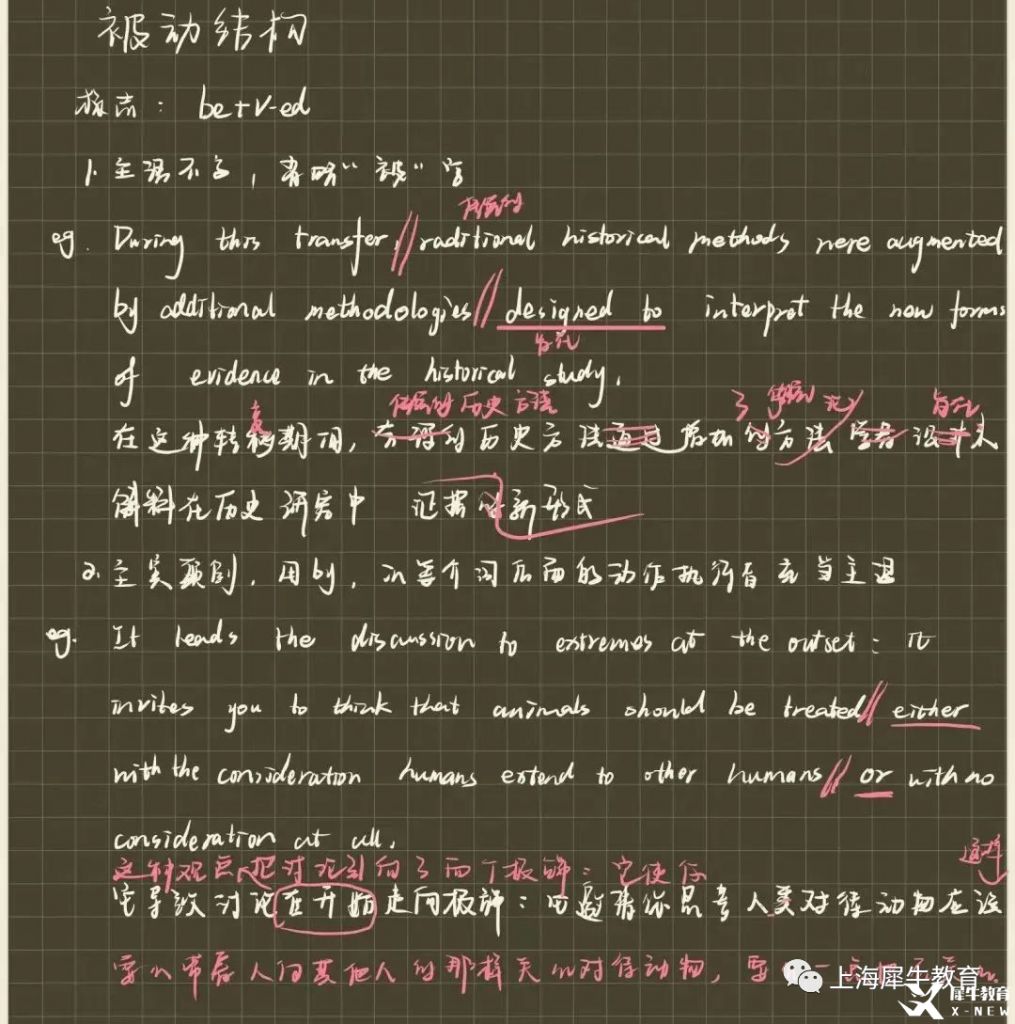 被动结构
标志: be+V-ed
1. 主语不多, 省略"被"字
传统的
eg. During this transfer, raditional historical methods were augmented
by additional methodologies designed to interpret the new forms
旨在
of evidence in the historical study.
传统的历史方法 了 旨在
在这种转移期间, 的历史方法通过 的方法
在历史研究中 证据的新形式
2. 主宾颠倒, 用by, 介词后面的动作执行者充当主语
eg. It leads the discussion to extremes at the outset: it
invites you to think that animals should be treated either
with the consideration humans extend to other humans or with no
consideration at all.
这种观点把讨论引向了两个极端: 它使你
它导致讨论在开始走向极端: 它邀请你思考人类对待动物应该
要么带着人们其他人的那样关心对待动物, 要
上海犀牛教育
犀牛教育
X-NEW